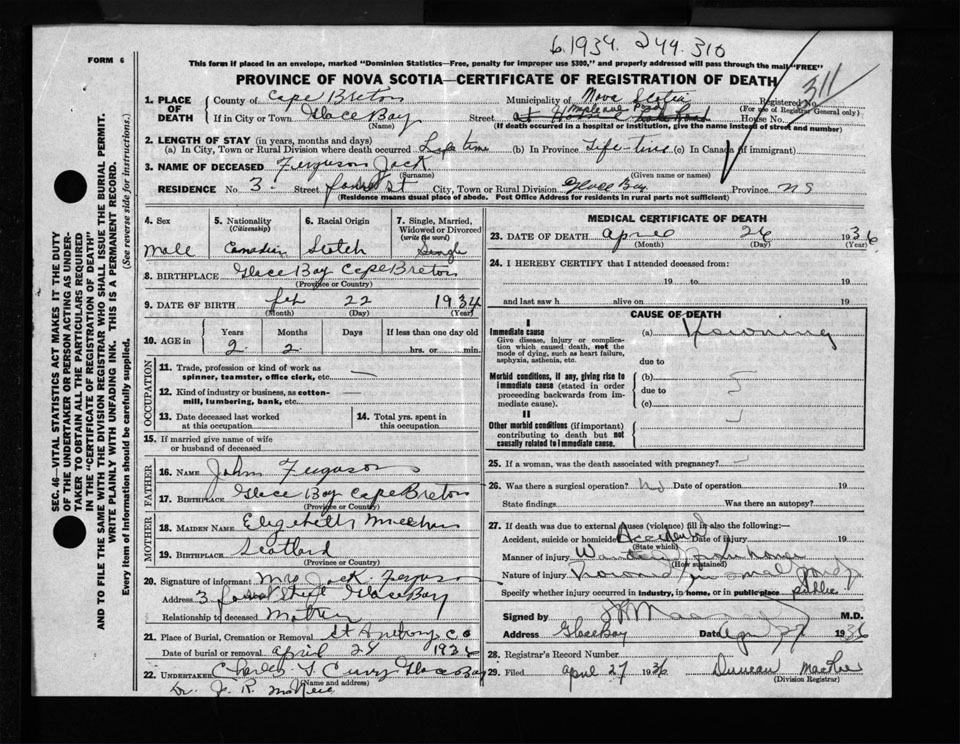 6.1934. 249. 310
FORM 6
This form if placed in an envelope, marked "Dominion Statistics—Free, penalty for improper use $300," and properly addressed will pass through the mail "FREE"
PROVINCE OF NOVA SCOTIA—CERTIFICATE OF REGISTRATION OF DEATH
311
1. PLACE OF DEATH
County of Cape Breton Municipality of Nova Scotia Registered No.
(For use of Registrar General only)
If in City or Town Glace Bay Street House No.
(Name) (If death occurred in a hospital or institution, give the name instead of street and number)
2. LENGTH OF STAY (in years, months and days)
(a) In City, Town or Rural Division where death occurred Life time (b) In Province Life-time (c) In Canada (if immigrant)
3. NAME OF DECEASED Ferguson Jack
(Surname) (Given name or names)
RESIDENCE No. 3. Street Forest St City, Town or Rural Division Glace Bay Province NS
(Residence means usual place of abode. Post Office Address for residents in rural parts not sufficient)
4. Sex Male
5. Nationality (Citizenship) Canadian
6. Racial Origin Scotch
7. Single, Married, Widowed or Divorced (write the word) Single
8. BIRTHPLACE Glace Bay Cape Breton
(Province or Country)
9. DATE OF BIRTH Feb 22 1934
(Month) (Day) (Year)
10. AGE Years Months Days If less than one day old
2 2 hrs. or min.
OCCUPATION
11. Trade, profession or kind of work as spinner, teamster, office clerk, etc. —
12. Kind of industry or business, as cotton-mill, lumbering, bank, etc. —
13. Date deceased last worked at this occupation
14. Total yrs. spent in this occupation
15. If married give name of wife or husband of deceased
FATHER
16. NAME John Ferguson
17. BIRTHPLACE Glace Bay Cape Breton
(Province or Country)
MOTHER
18. MAIDEN NAME Elizabeth
19. BIRTHPLACE Scotland
(Province or Country)
20. Signature of informant Mrs Jack Ferguson
Address 3 Forest Street Glace Bay
Relationship to deceased Mother
21. Place of Burial, Cremation or Removal St Anthony
Date of burial or removal April 28 1936
22. UNDERTAKER Charles Curry Glace Bay
(Name and address)
Dr. J. R.
MEDICAL CERTIFICATE OF DEATH
23. DATE OF DEATH April 26 1936
(Month) (Day) (Year)
24. I HEREBY CERTIFY that I attended deceased from:
19 to 19
and last saw h alive on 19
CAUSE OF DEATH
I
Immediate cause (a) Drowning
Give disease, injury or complication which caused death, not the mode of dying, such as heart failure, asphyxia, asthenia, etc.
due to
Morbid conditions, if any, giving rise to immediate cause (stated in order proceeding backwards from immediate cause).
(b)
due to
(c)
II
Other morbid conditions (if important) contributing to death but not causally related to immediate cause.
25. If a woman, was the death associated with pregnancy? —
26. Was there a surgical operation? No Date of operation 19
State findings Was there an autopsy?
27. If death was due to external causes (violence) fill in also the following:—
Accident, suicide or homicide Accident Date of injury 19
(State which)
Manner of injury Wandered from home
(How sustained)
Nature of injury Drowned in small pond
Specify whether injury occurred in industry, in home, or in public place Public
Signed by M.D.
Address Glace Bay Date Apr 27 1936
28. Registrar's Record Number
29. Filed April 27 1936 Duncan
(Division Registrar)
SEC. 46—VITAL STATISTICS ACT MAKES IT THE DUTY
OF THE UNDERTAKER OR PERSON ACTING AS UNDER-
TAKER TO OBTAIN ALL THE PARTICULARS REQUIRED
IN THE "CERTIFICATE OF REGISTRATION OF DEATH"
AND TO FILE THE SAME WITH THE DIVISION REGISTRAR WHO SHALL ISSUE THE BURIAL PERMIT.
WRITE PLAINLY WITH UNFADING INK. THIS IS A PERMANENT RECORD.
Every item of information should be carefully supplied. (See reverse side for instructions.)